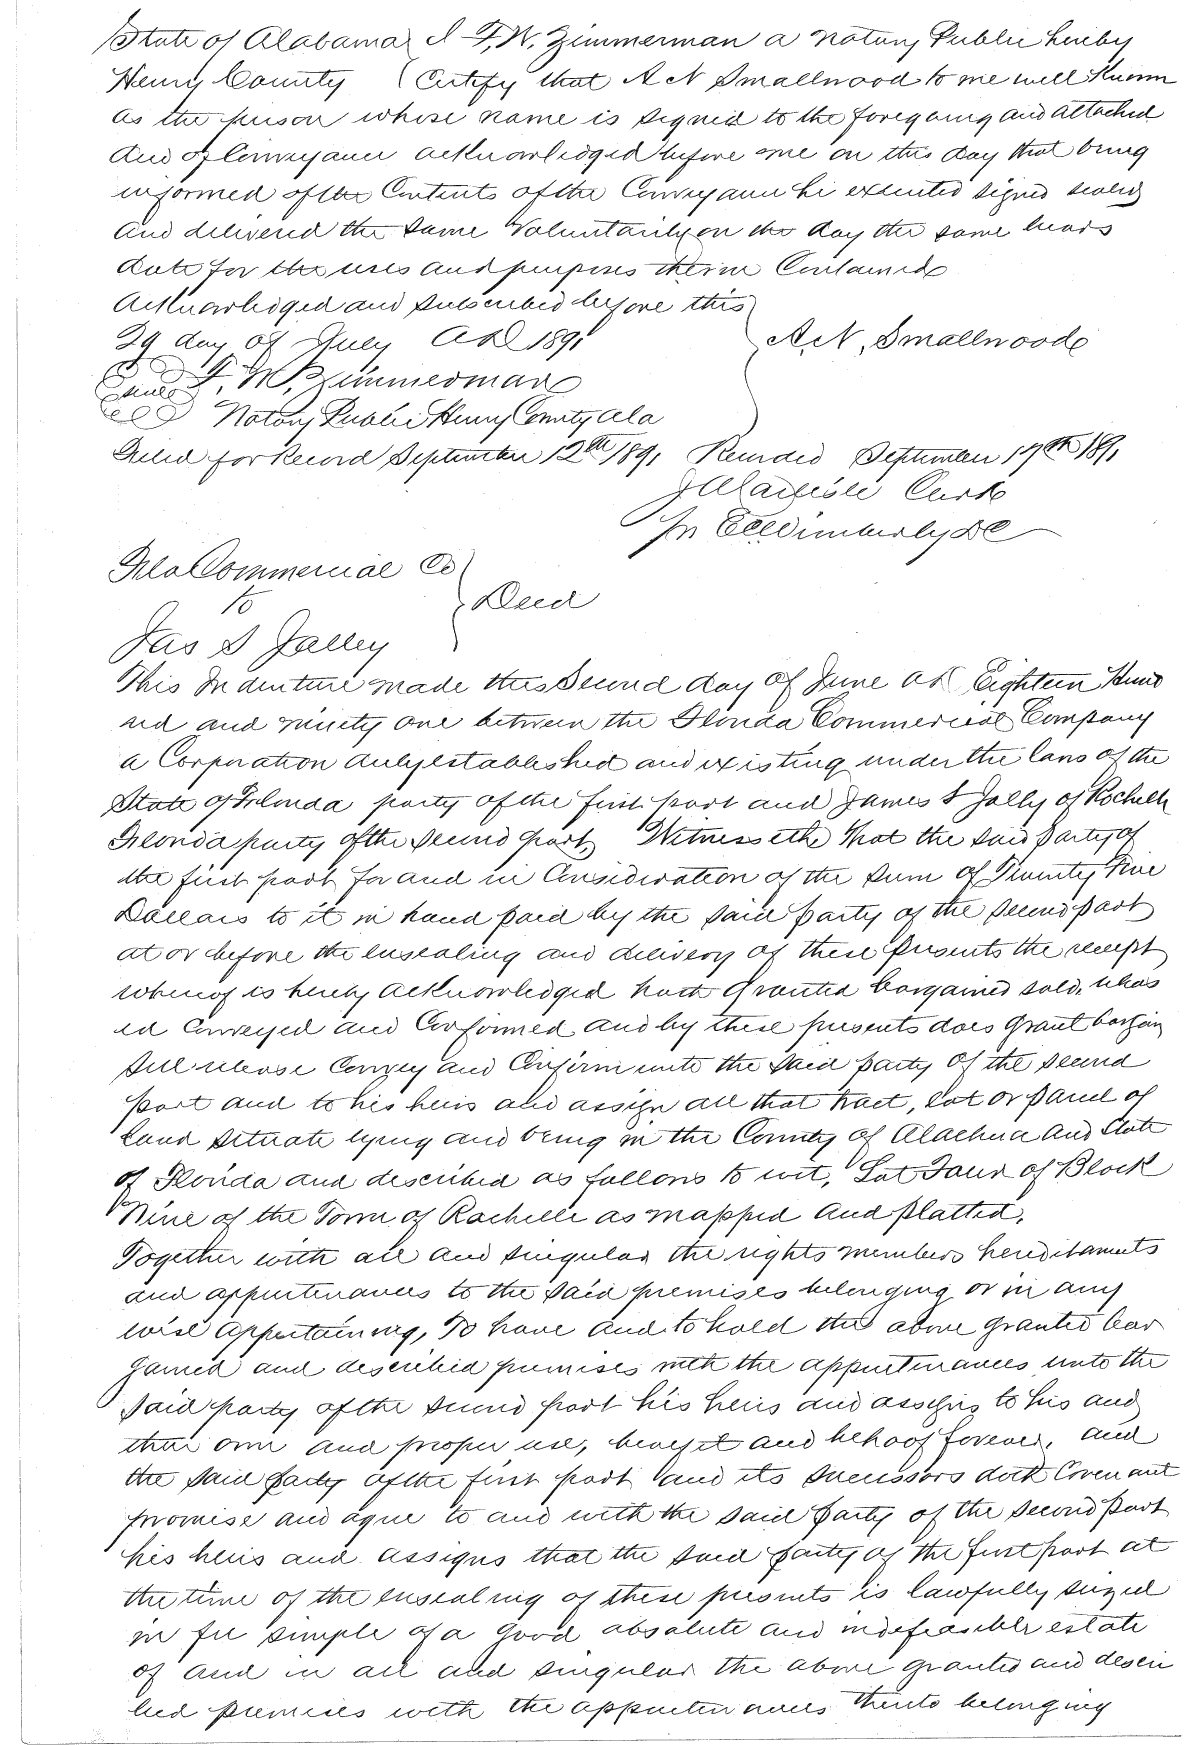 State of Alabama } I F. W. Zimmerman a Notary Public hereby
Henry County } Certify that A N Smallwood to me well Known
as the person whose name is signed to the foregoing and attached
deed of Conveyance acknowledged before me on this day that being
informed of the Contents of the Conveyance he executed signed sealed
and delivered the same Voluntarily on the day the same bears
date for the uses and purposes therein Contained
Acknowledged and subscribed before this
29 day of July AD 1891 } A. N, Smallwood
Seal F. W. Zimmerman
Notary Public Henry County Ala
Filed for Record September 12th 1891 Recorded September 19th 1891
Clerk
Wimberly DC
Fla Commercial Co
to } Deed
Jas S Jolley
This Indenture made this Second day of June AD Eighteen Hund
red and ninety one between the Florida Commercial Company
a Corporation duly established and existing under the laws of the
State of Florida party of the first part and James S Jolly of Rochelle
Florida party of the second part, Witnesseth That the said party of
the first part for and in Consideration of the sum of Twenty Five
Dollars to it in hand paid by the said party of the second part
at or before the ensealing and delivery of these presents the receipt
whereof is hereby acknowledged hath granted bargained sold, releas
ed Conveyed and Confirmed and by these presents does grant bargain
sell release Convey and Confirm unto the said party of the second
part and to his heirs and assign all that tract, lot or parcel of
land situate lying and being in the County of Alachua and State
of Florida and described as follows to wit, Lot Four of Block
Nine of the Town of Rochelle as mapped and platted,
Together with all and singular the rights members hereditaments
and appurtenances to the said premises belonging or in any
wise appertaining, To have and to hold the above granted bar
gained and described premises with the appurtenances unto the
said party of the second part his heirs and assigns to his and
their own and proper use, benefit and behoof forever, and
the said party of the first part and its successors doth Covenant
promise and agree to and with the said party of the second part
his heirs and assigns that the said party of the first part at
the time of the ensealing of these presents is lawfully seized
in fee simple of a good absolute and indefeasible estate
of and in all and singular the above granted and descri
bed premises with the appurtenances thereto belonging